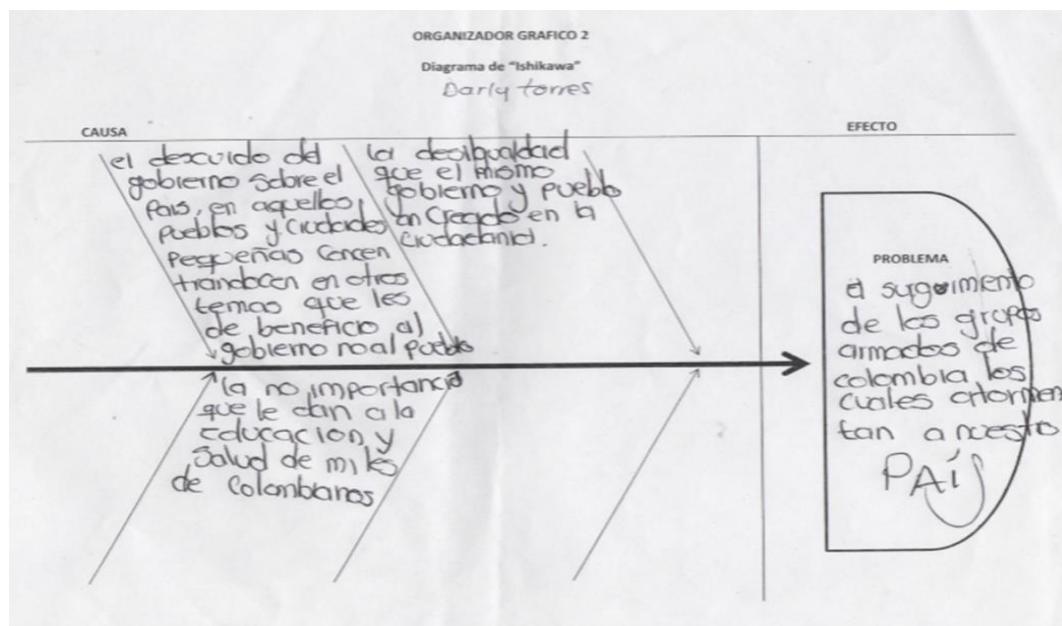 ORGANIZADOR GRAFICO 2
Diagrama de "Ishikawa"
Darly torres
CAUSA
EFECTO
el descuido del
gobierno sobre el
país, en aquellos
pueblos y ciudades
pequeñas concen
trandocen en otros
temas que les
de beneficio al
gobierno no al pueblo
la desigualdad
que el mismo
gobierno y pueblo
an creado en la
ciudadania.
la no importancia
que le dan a la
educacion y
salud de miles
de Colombianos
PROBLEMA
el surgimiento
de los grupos
armados de
colombia, los
cuales atormen
tan a nuestro
PAÍS